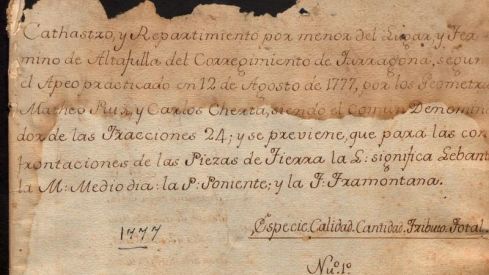 Cathastro, y Repartimiento por menor del Lugar y Ter
mino de Altafulla del Corregimiento de Tarragona, segun
el Apeo practicado en 12 de Agosto de 1777, por los Geometras
Matheo Ruz, y Carlos Cherta, siendo el Comun Denomina
dor de las Fracciones 24; y se previene, que para las con
frontaciones de las Piezas de Tierra la L: significa Lebant
la M: Mediodia: la P: Poniente; y la T: Tramontana.
1777
Especie. Calidad. Cantidad. Tributo. Total.
Nu.º 1º